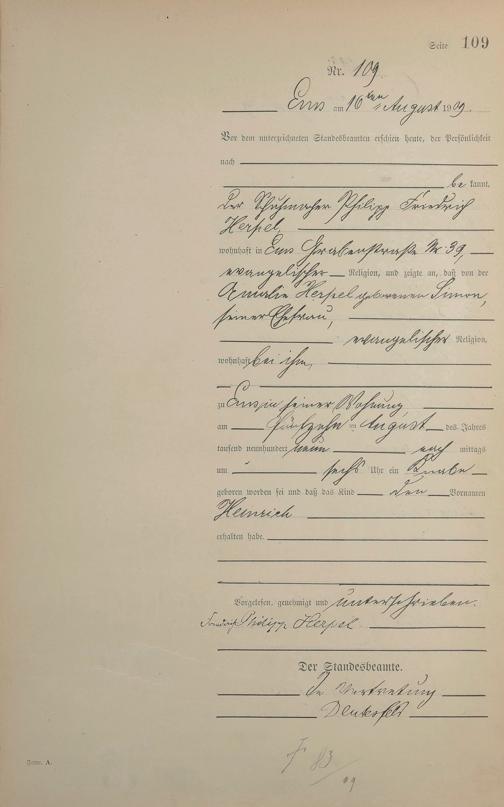 Seite 109
Nr. 109
Ems am 16ten August 1909.
Vor dem unterzeichneten Standesbeamten erschien heute, der Persönlichkeit
nach
bekannt,
der Schuhmacher Philipp Friedrich
Herpel,
wohnhaft in Ems Grabenstraße Nr 39,
evangelischer Religion, und zeigte an, daß von der
Amalie Herpel geborenen Simon,
seiner Ehefrau,
evangelischer Religion,
wohnhaft bei ihm,
zu Ems in seiner Wohnung
am fünfzehn ten August des Jahres
tausend neunhundert neun nach mittags
um sechs Uhr ein Knabe
geboren worden sei und daß das Kind den Vornamen
Heinrich
erhalten habe.
Vorgelesen, genehmigt und unterschrieben.
Philipp Herpel
Der Standesbeamte.
In Vertretung
Form. A.
83
09